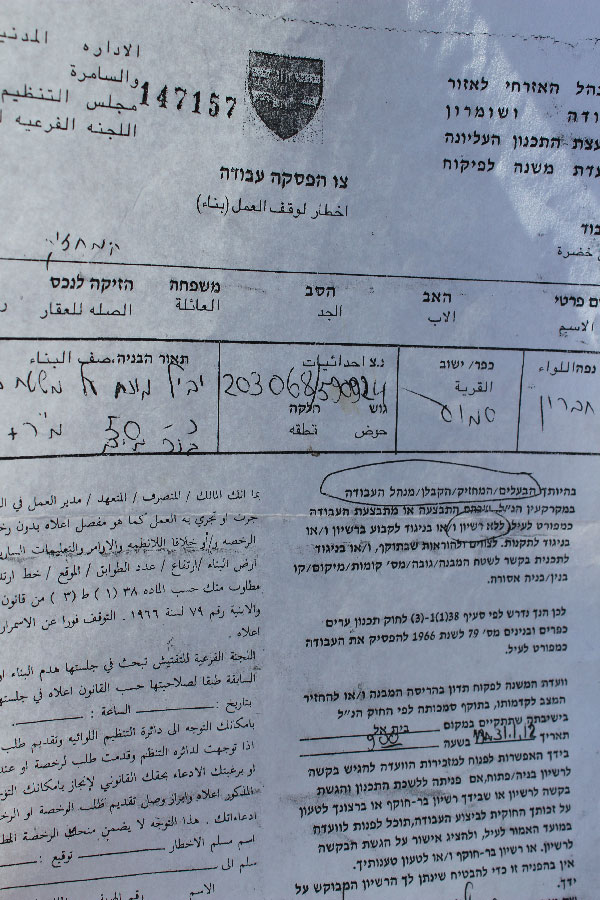 הל האזרחי לאזור
ודה ושומרון
צת התכנון העליונה
עדת משנה לפיקוח
الاداره المدني
والسامرة
مجلس التنظيم
اللجنه الفرعيه ل
147157
צו הפסקה עבודה
اخطار لوقف العمل (بناء)
המחזיק
ים פרטי
האב
הסב
משפחה
הזיקה לנכס
الاسم
الاب
الجد
العائلة
الصله للعقار
נפה/اللواء
חברון
כפר/ ישוב
القرية
סמוע
נ.צ احداثيات
203068/590924
גוש חלקה
حوض قطعه
תאור הבניה، صف البناء
50 מ"ר +
בהיותך הבעלים/המחזיק/הקבלן/מנהל העבודה
במקרקעין הנ"ל, שבהם התבצעה או מתבצעת העבודה
כמפורט לעיל, ללא רשיון ו/או בניגוד לקבוע ברשיון ו/או
בניגוד לתקנות. לצווים ולהוראות שבתוקף, ו/או בניגוד
לתכנית בקשר לשטח המבנה/גובה/מס' קומות/מיקום/קו
בנין/בניה אסורה.
לכן הנך נדרש לפי סעיף 38(1)-(3) לחוק תכנון ערים
כפרים ובנינים מס' 79 לשנת 1966 להפסיק את העבודה
כמפורט לעיל.
וועדת המשנה לפקוח תדון בהריסת המבנה ו/או להחזיר
המצב לקדמותו, בתוקף סמכותה לפי החוק הנ"ל
בישיבתה שתתקיים במקום בית אל
תאריך 31.1.12 בשעה 900
בידך האפשרות לפנות למזכירות הוועדה להגיש בקשה
לרשיון בניה/פתוח, אם פניתה ללשכת התכנון והגשת
בקשה לרשיון או שבידך רשיון בר-חוקף או ברצונך לטעון
על זכותך החוקית לביצוע העבודה, תוכל לפנות לוועדה
במועד האמור לעיל, ולהציג אישור על הגשת הבקשה
לרשיון. או רשיון בר-חוקף ו/או לטעון טענותיך.
אין בהפניה זו כדי להבטיח שינתן לך הרשיון המבוקש על
ידך.
بما انك المالك / المتصرف / المتعهد / مدير العمل في ال
جرت او تجري به العمل كما هو مفصل اعلاه بدون رخ
الرخصه و/أو خلافا للانظمه والاوامر والتعليمات الساري
ارض البناء /ارتفاع / عدد الطوابق / الموقع / خط ارتد
مطلوب منك حسب الماده ٣٨ (١) ط (٣) من قانون
والابنية رقم ٧٩ لسنة ١٩٦٦ . التوقف فورا عن الاستمرار
اعلاه .
اللجنه الفرعيه للتفتيش تبحث في جلستها هدم البناء او
السابقة طبقا لصلاحيتها حسب القانون اعلاه في جلسته
بتاريخ : الساعة :
بامكانك التوجه الى دائرة التنظيم اللوائيه وتقديم طلب
اذا توجهت لدائره التنظم وقدمت طلب لرخصة او عند
او برغبتك الادعاء بحقك القانوني لإنجاز بامكانك التوج
المذكور اعلاه وابراز وصل تقديم طلب الرخصة او الرخص
ادعاءاتك . هذا التوجه لا يضمن منحك الرخصة المط
اسم مسلم الاخطار توقيع :
سلم الى
الاسم